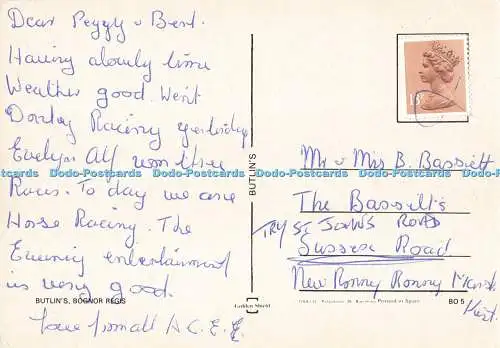 Dear Peggy & Bert.
Having a lovely time
Weather good. Went
Donkey Racing yesterday
Evelyn Alf won three
Races. To day we are
Horse Racing. The
Evening entertainment
is very good.
BUTLIN'S, BOGNOR REGIS
Love from all A C E E
BUTLIN'S
Golden Shield
Mr & Mrs B. Bassett
The Bassett's
TRY ST JOHN'S ROAD
Sussex Road
New Romny Romny Marsh
Kent.
Printed in Spain
BO 5
Dodo-Postcards Dodo-Postcards Dodo-Postcards Dodo-Postcards Dodo-Postcards